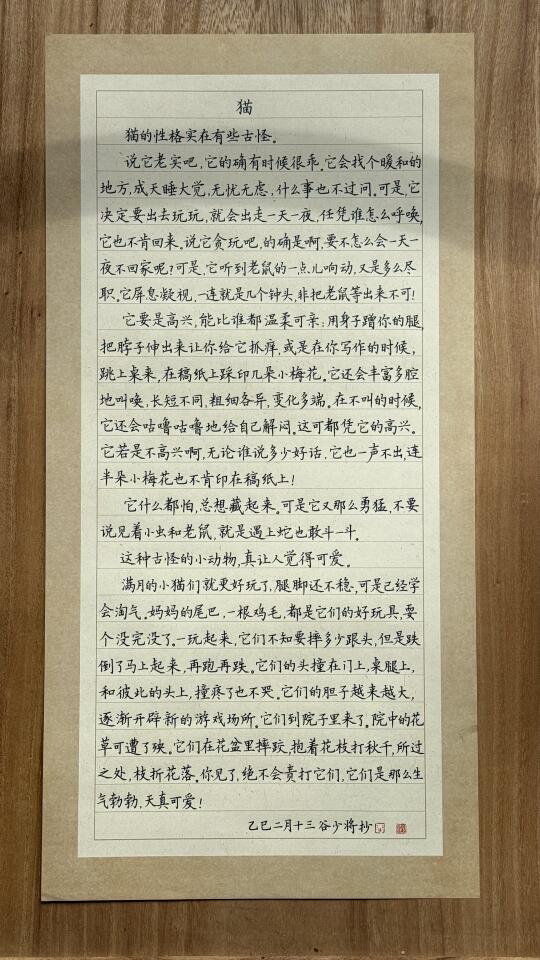 猫
猫的性格实在有些古怪。
说它老实吧,它的确有时候很乖。它会找个暖和的
地方,成天睡大觉,无忧无虑,什么事也不过问。可是,它
决定要出去玩玩,就会出走一天一夜,任凭谁怎么呼唤,
它也不肯回来。说它贪玩吧,的确是啊,要不怎么会一天一
夜不回家呢?可是,它听到老鼠的一点儿响动,又是多么尽
职。它屏息凝视,一连就是几个钟头,非把老鼠等出来不可!
它要是高兴,能比谁都温柔可亲:用身子蹭你的腿,
把脖子伸出来让你给它抓痒,或是在你写作的时候,
跳上桌来,在稿纸上踩印几朵小梅花。它还会丰富多腔
地叫唤,长短不同,粗细各异,变化多端。在不叫的时候,
它还会咕噜咕噜地给自己解闷。这可都凭它的高兴。
它若是不高兴啊,无论谁说多少好话,它也一声不出,连
半朵小梅花也不肯印在稿纸上!
它什么都怕,总想藏起来。可是它又那么勇猛,不要
说见着小虫和老鼠,就是遇上蛇也敢斗一斗。
这种古怪的小动物,真让人觉得可爱。
满月的小猫们就更好玩了,腿脚还不稳,可是已经学
会淘气。妈妈的尾巴,一根鸡毛,都是它们的好玩具,耍
个没完没了。一玩起来,它们不知要摔多少跟头,但是跌
倒了马上起来,再跑再跌。它们的头撞在门上,桌腿上,
和彼此的头上,撞疼了也不哭。它们的胆子越来越大,
逐渐开辟新的游戏场所。它们到院子里来了。院中的花
草可遭了殃。它们在花盆里摔跤,抱着花枝打秋千,所过
之处,枝折花落。你见了,绝不会责打它们,它们是那么生
气勃勃,天真可爱!
乙巳二月十三谷少将抄